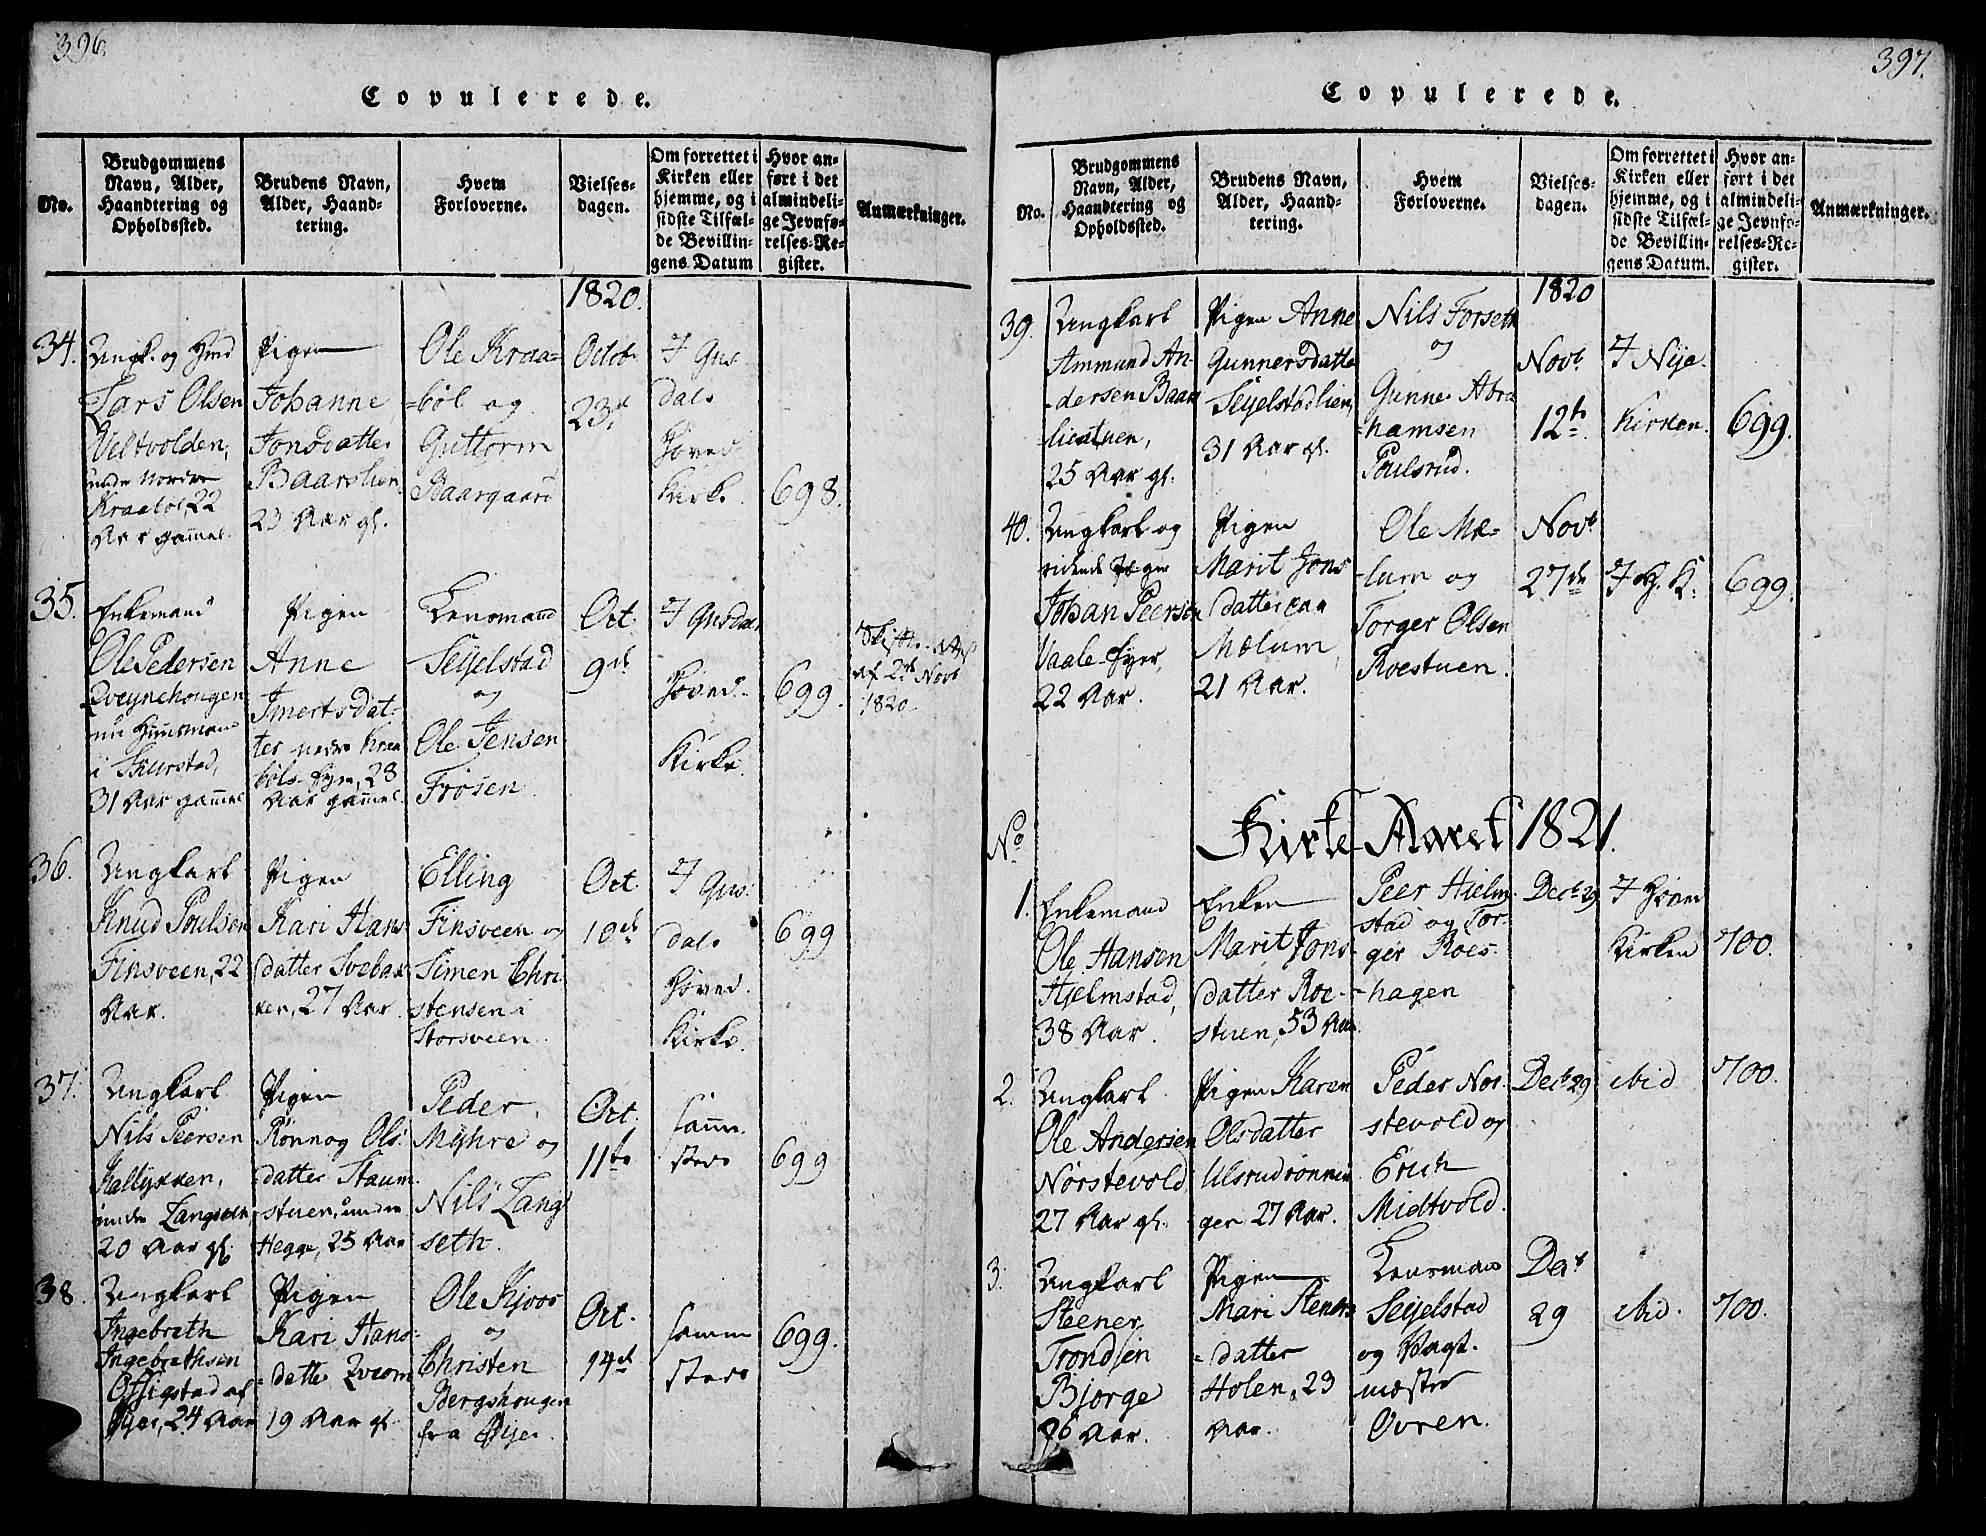 396.
Copulerede.
No.
Brudgommens
Navn, Alder,
Haandtering og
Opholdssted.
Brudens Navn,
Alder, Haand-
tering.
Hvem
Forloverne.
Vielses-
dagen.
Om forrettet i
Kirken eller
hjemme, og i
sidste Tilfæl-
de Bevillin-
gens Datum
Hvor an-
ført i det
almindeli-
ge Jevnfø-
relses-Re-
gister.
Anmærkninger.
1820.
34.
Ungk. og Hmd
Lars Olsen
Veltvolden,
under Nordre
Kraabøl, 22
Aar gammel.
Pigen
Johanne
Jonsdatter
Baarslien
23 Aar gl.
Ole Kraa=
=bøl og
Guttorm
Baargaard
Octob.
23d
I Gus
dals
Hoved-
Kirke.
698.
35.
Enkemand
Ole Pedersen
Qveynehougen
nu Huusmand
i Skurstad,
31 Aar gammel
Pigen
Anne
Imertsdat-
ter nedre Kraa
bøls-Eyer, 28
Aar gammel.
Lensmand
Seijelstad
og
Ole Jensen
Frøsen.
Oct.
9de
I Gusdals
Hoved-
Kirke.
699.
Skifte-Attest
af 2d Novb
1820
36.
Ungkarl
Knud Poulsen
Finsveen, 22
Aar.
Pigen
Kari Hans
datter Svebak
ken, 27 Aar.
Elling
Finsveen og
Simen Chri
stensen i
Storsveen.
Oct.
10de
I Gus:
dals
Hoved.
Kirke.
699
37.
Ungkarl
Nils Peersen
Kallykken,
under Langseth
20 Aar gl.
Pigen
Rønnog Ols:
datter Staum
stuen, under
Hegge, 25 Aar
Peder
Myhre og
Nils Lang
seth.
Oct.
11te
samme
steds
699
38.
Ungkarl
Ingebreth
Ingebrethsen
Offigstad af
Øyer, 24 Aar
Pigen
Kari Hans-
datter Qveom
19 Aar gl.
Ole Kjøos
og
Christen
Bergshougen
fra Øyer
Oct.
14de
samme
steds
699.
397.
Copulerede.
No.
Brudgommens
Navn, Alder,
Haandtering og
Opholdssted.
Brudens Navn,
Alder, Haand-
tering.
Hvem
Forloverne.
Vielses-
dagen.
Om forrettet i
Kirken eller
hjemme, og i
sidste Tilfæl-
de Bevillin-
gens Datum.
Hvor an-
ført i det
almindeli-
ge Jevnfø-
relses-Re-
gister.
Anmærkninger.
1820
39.
Ungkarl
Ammund An-
-dersen Baars
liestuen,
25 Aar gl.
Pigen Anne
Gunnersdatter
Seijelstadlien,
31 Aar gl.
Nils Forseth
og
Gunner Abra
-hamsen
Poulsrud.
Novb.
12te
I Nije.
Kirken.
699.
40.
Ungkarl og
ridende Jæger
Johan Peersen
Vaale-Eyer,
22 Aar.
Pigen
Marit Jons
datter paa
Mælum,
21 Aar.
Ole Mæ-
-lum og
Torger Olsen
Roestuen.
Novb
27de
I H. K.
699.
No
Kirke-Aaret 1821.
1.
Enkemand
Ole Hansen
Hjelmstad,
38 Aar.
Enken
Marit Jons-
datter Roe-
stuen, 53 Aar.
Peer Hielm-
stad og Tor-
ger Roes-
-hagen
Decb 29
I Hoved
Kirken
700.
2.
Ungkarl
Ole Andersen
Nørstevold
27 Aar gl.
Pigen Karen
Olsdatter
Ulsrudrønnin
ger 27 Aar.
Peder Nør-
stevold og
Erich
Midtvold.
Decb 29
ibid
700.
3.
Ungkarl
Steener
Trondsen
Bjørge
26 Aar.
Pigen
Mari Steners
-datter
Holen, 23
Aar.
Lensmand
Seijelstad
og Vagt-
mæster
Øvren.
Decb
29
ibid.
700.